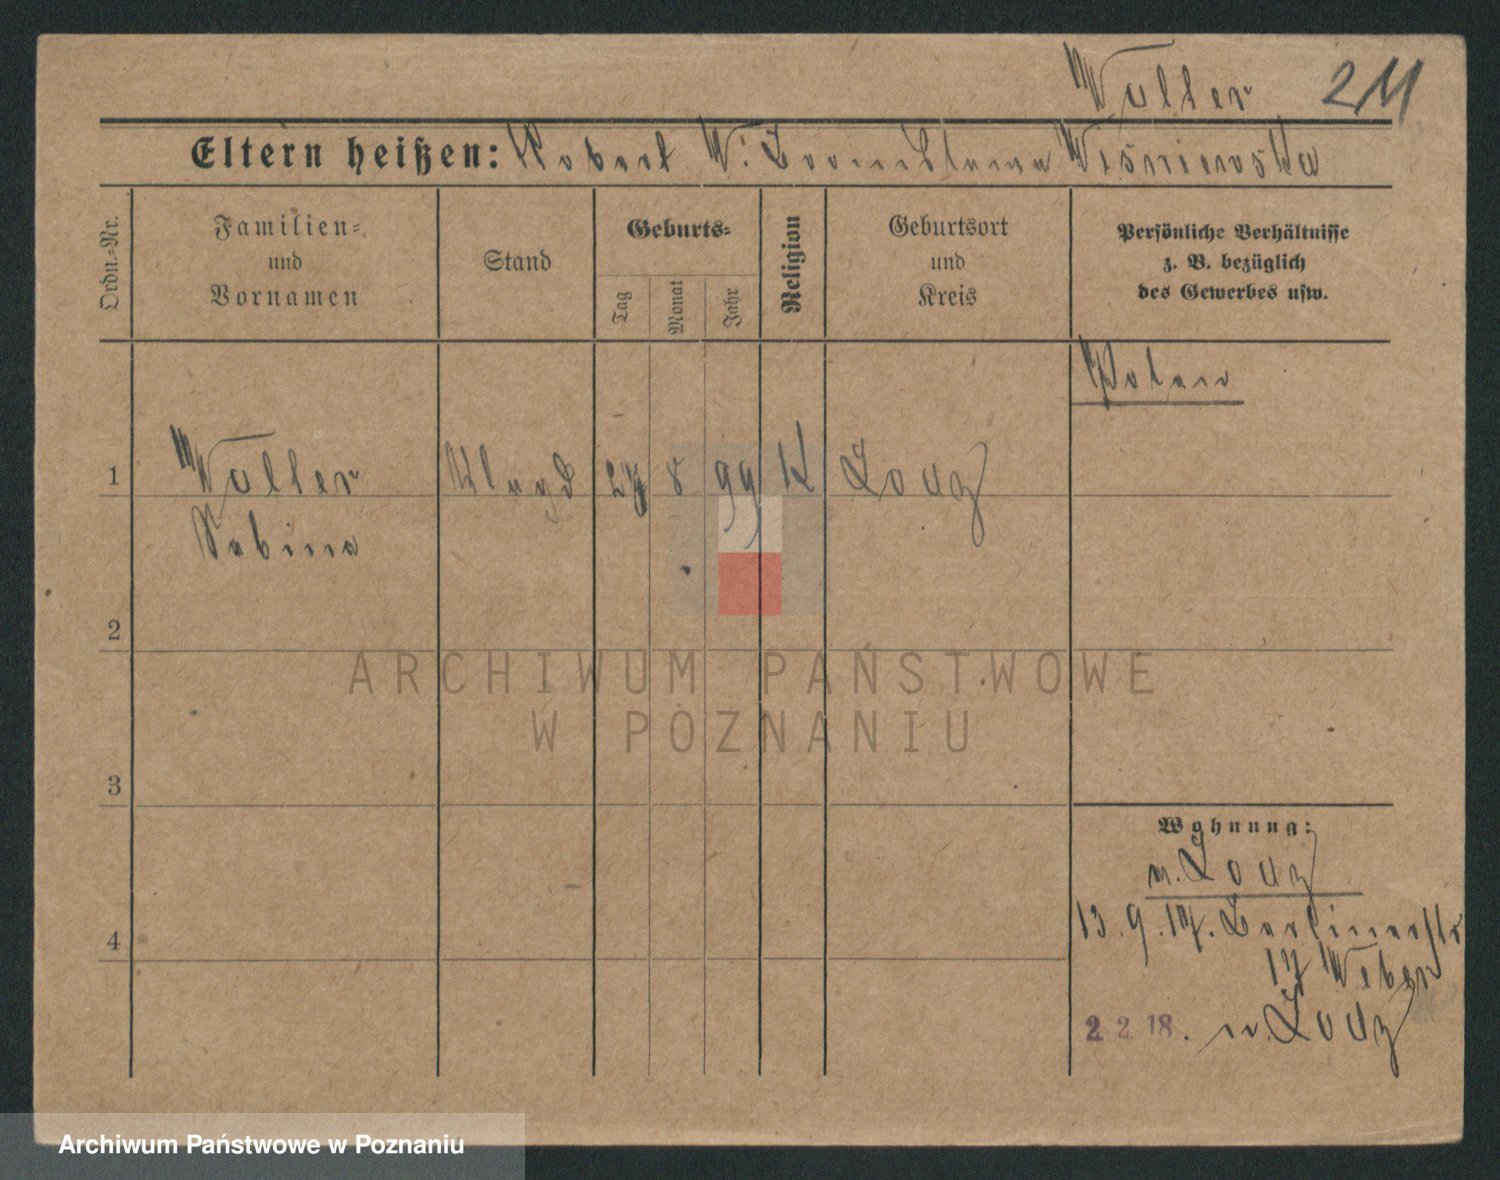 Walter 211
Eltern heißen: Robert W. Bronislawa Wiśniewska
Ordn.-Nr.
Familien-
und
Vornamen
Stand
Geburts-
Tag
Monat
Jahr
Religion
Geburtsort
und
Kreis
Persönliche Verhältnisse
z. B. bezüglich
des Gewerbes usw.
Polen
1 Walter Magd 27 8 99 K Lodz
Sabina
2
ARCHIWUM PAŃSTWOWE
W POZNANIU
3
Wohnung:
n. Lodz
13.9.17. Berlinerstr
17 Weber
4
2 2 18. n. Lodz
Archiwum Państwowe w Poznaniu